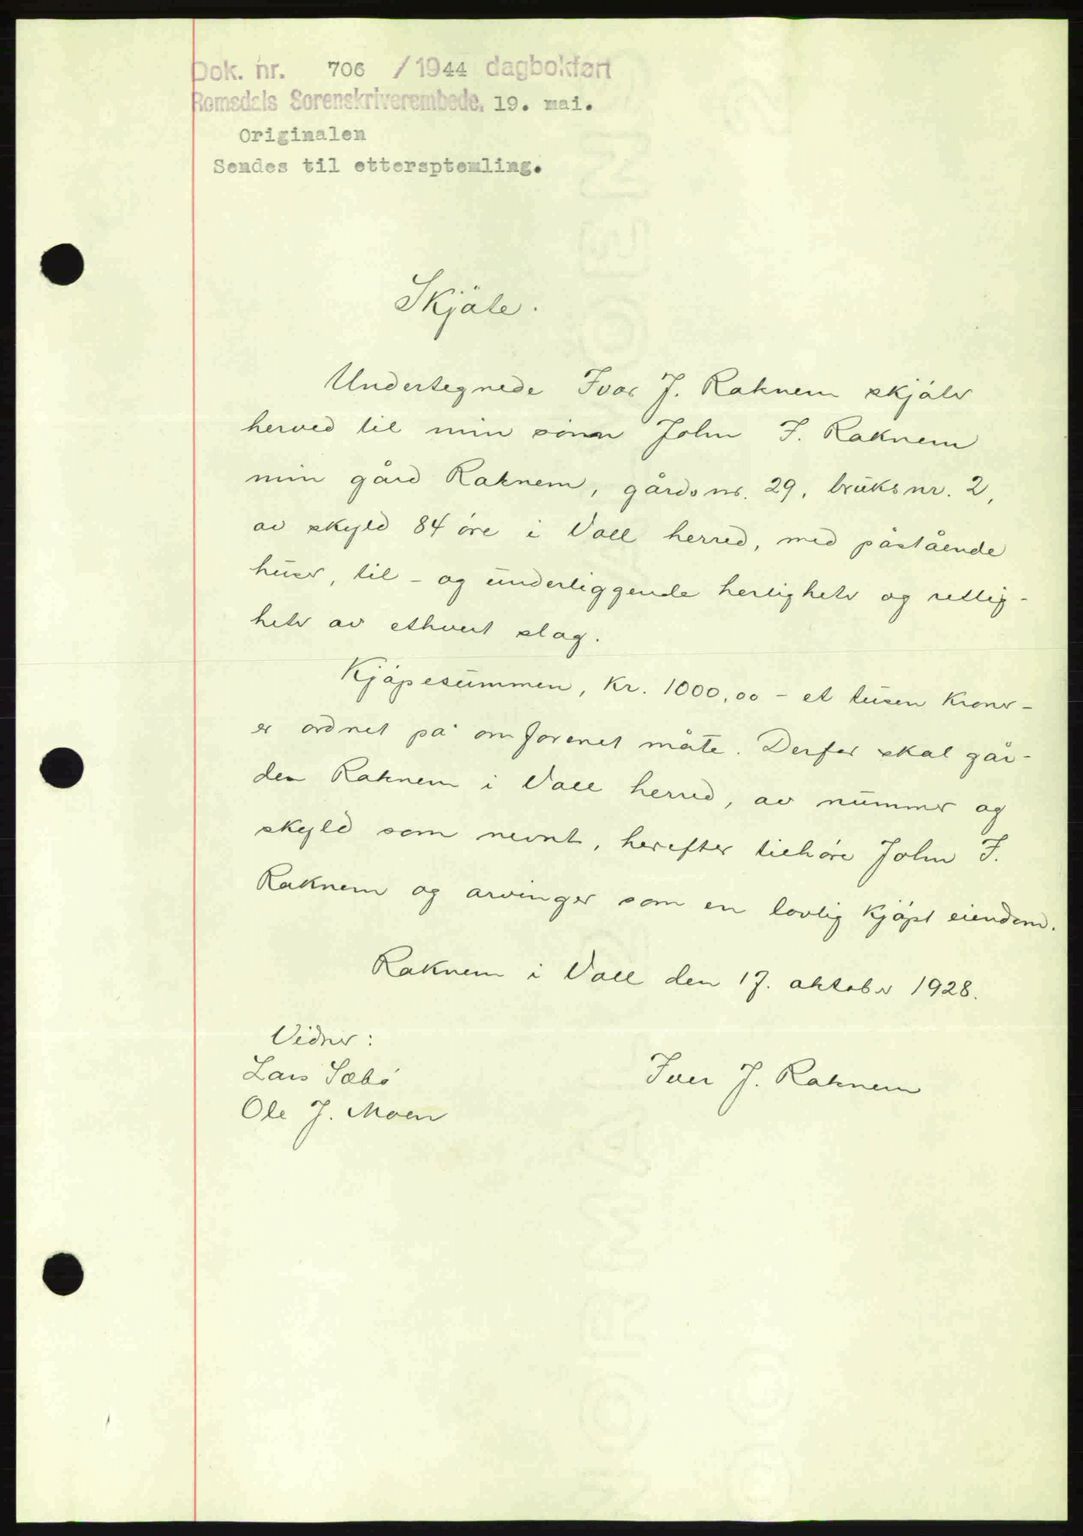 Dok. nr. 706 /1944 dagbokført
Romsdals Sorenskriverembede, 19. mai.
Originalen
Sendes til ettersptemling.
Skjöte.
Undertegnede Ivar J. Raknem skjöter
herved til min sönn John I. Raknem
min gård Raknem, gårdsnr. 29, bruksnr. 2,
av skyld 84 öre i Voll herred, med påstående
huser, til- og underliggende herligheter og rettig-
heter av ethvert slag.
Kjöpesummen, kr. 1000,00 - et tusen kroner -
er ordnet på omforenet måte. Derfor skal går-
den Raknem i Voll herred, av nummer og
skyld som nevnt, herefter tilhöre John I.
Raknem og arvinger som en lovlig kjöpt eiendom.
Raknem i Voll den 17. oktober 1928.
Vidner:
Lars Sæbö
Iver J. Raknem
Ole J. Moen